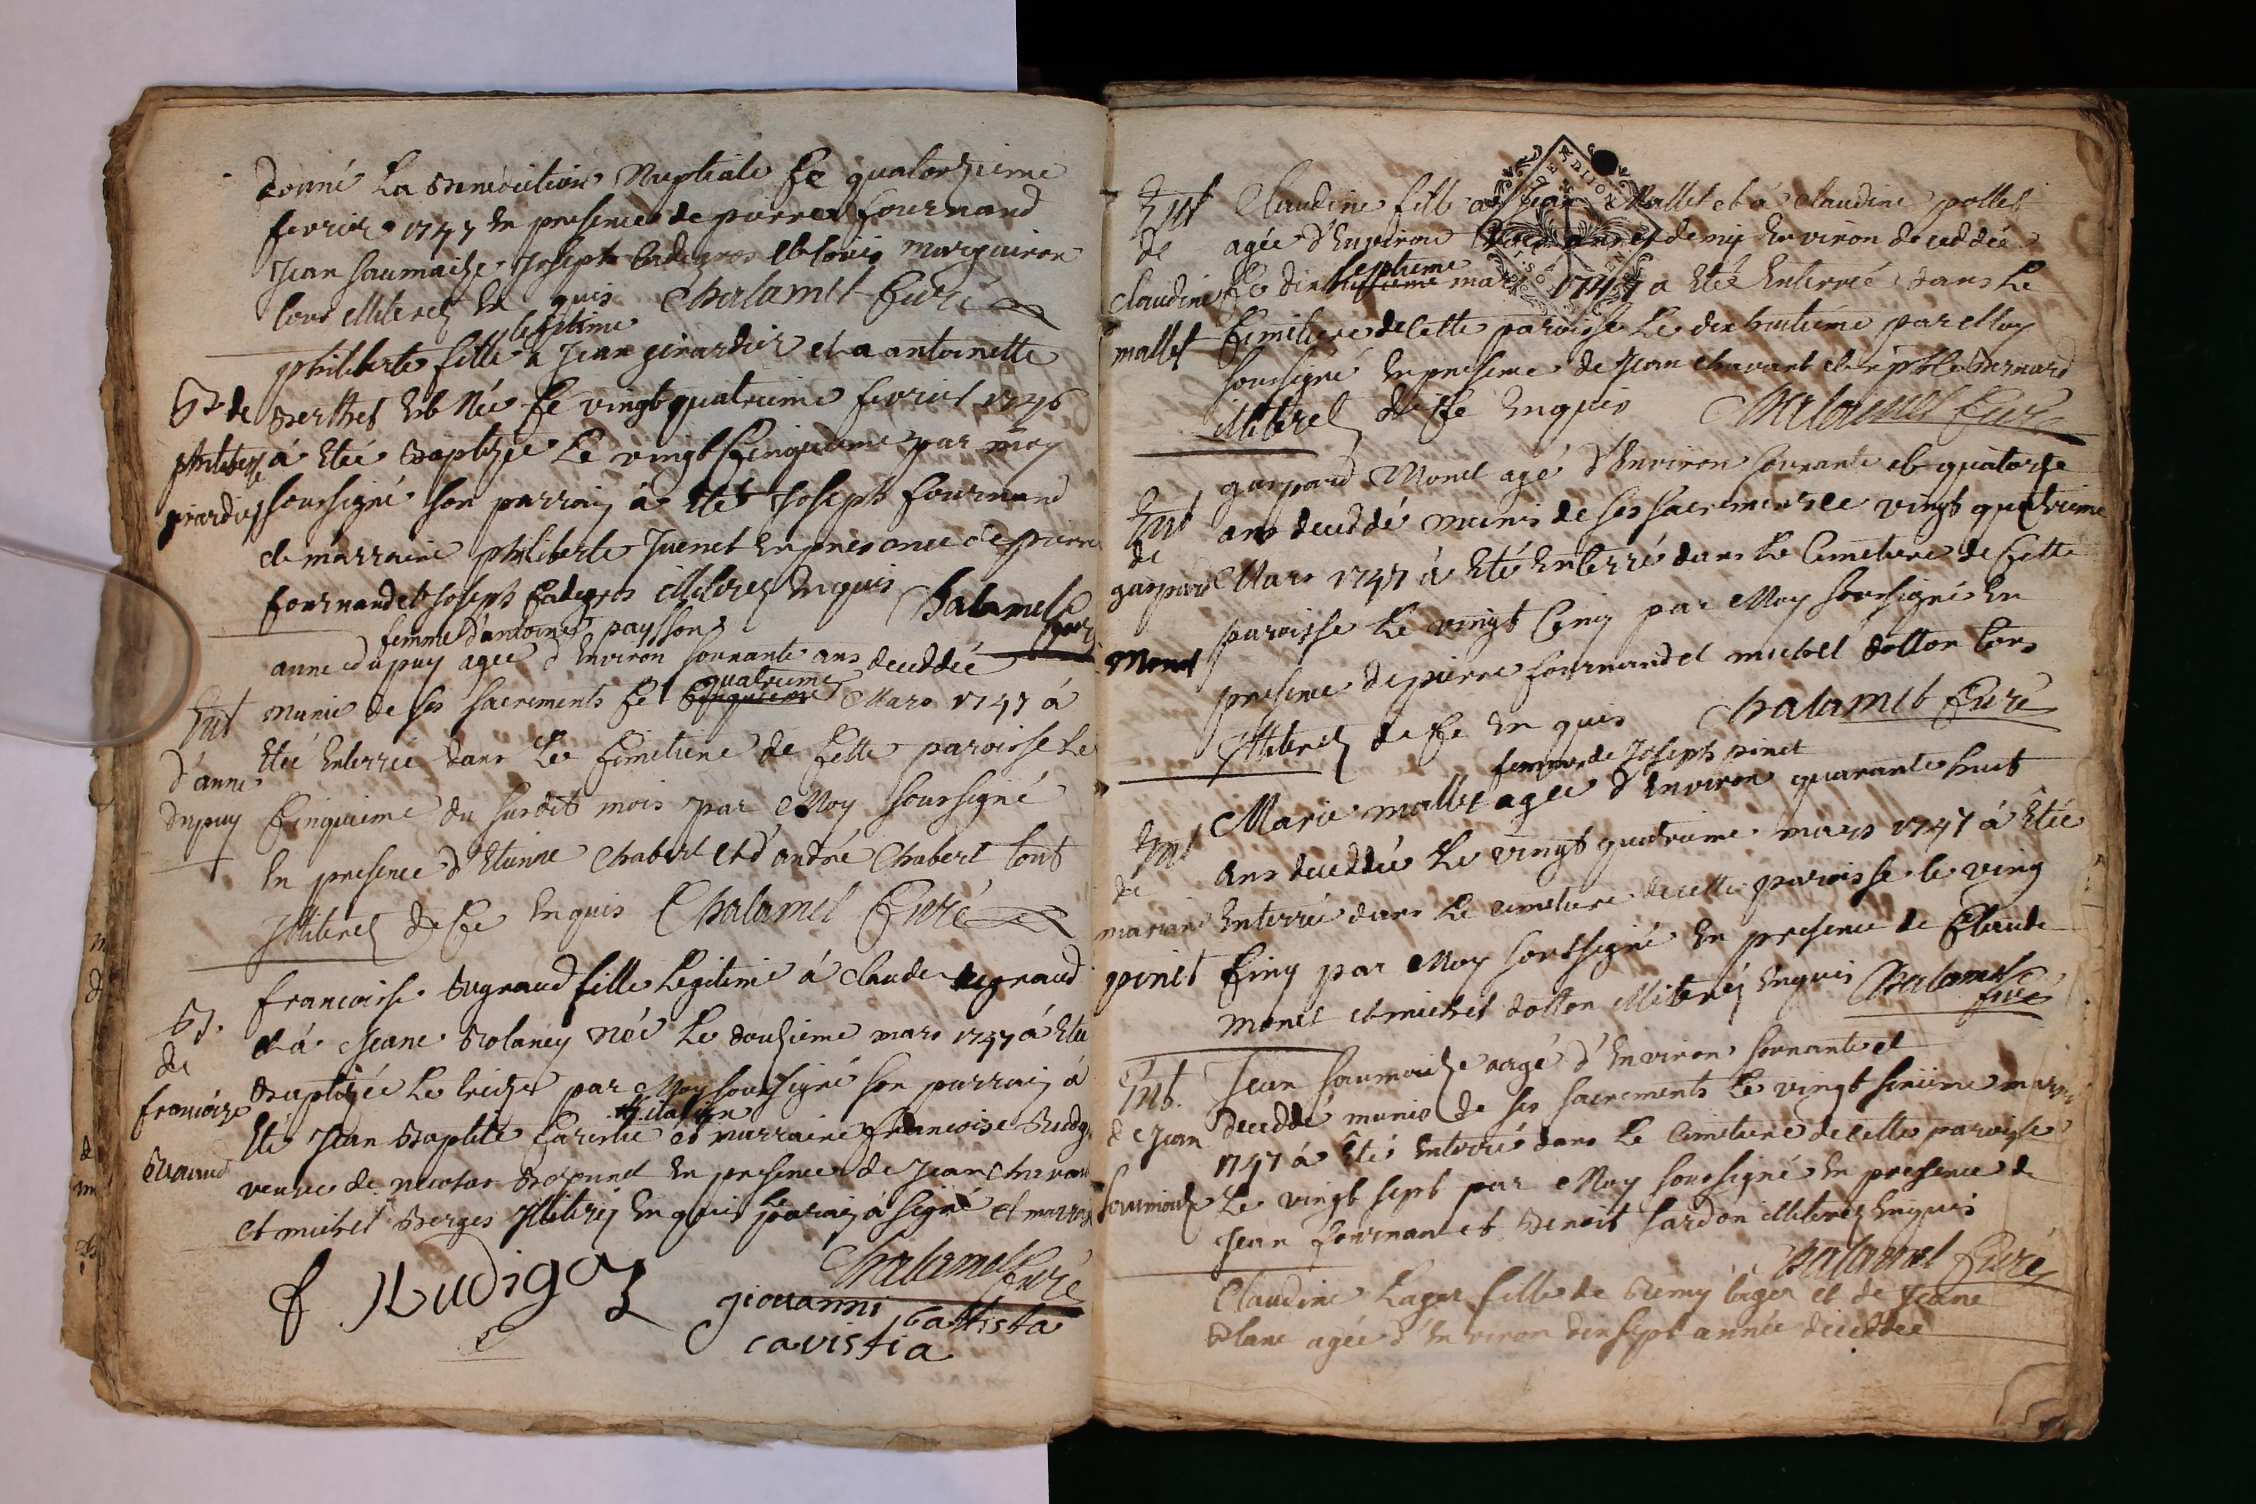 donné La Benediction Nuptiale Le quatorzieme
fevrier 1747 En presence de pierre fournand
Jean Saumaize Joseph Cadegros et Louis marguiron
tous illiterez En quis Chalamel Curé
legitime
philiberte fille a Jean girardier et a antoinette
Bt de
philiberte
girardier
Berthet Est Née Le vingt quatrieme fevrier 1746
á Eté Baptizée Le vingt Cinquieme par moy
soussigné son parrain á Eté Joseph fournand
et marraine philiberte Juenet En presence de pierre
fournand et Joseph Cadegros illiterez Enquis Chalamel
Curé
femme d'antoine paysson
anne dupuy agée d'Environ soixante ans deceddée
quatrieme
Ent
d'anne
dupuy
munie de ses sacrements Le Cinquieme Mars 1747 á
Eté Enterrée dans Le Cimetiere de Cette paroisse Le
Cinquieme du susdit mois par Moy soussigné
En presence d'Etienne Chabert et d'andré Chabert tous
Illiterez de Ce Enquis Chalamel Curé
Bt.
de
francoise
francoise fille Legitime á Claude
et á Jeane Née Le douzieme mars 1747 á Eté
Baptizée Le treize par Moy soussigné son parrain á
italien
Eté Jean Baptiste et marraine francoise
veuve de En presence de Jean
et michel Berger Illiterez Enquis Le parrain á signé et
Chalamel Curé
f Rudigoz
giouanni battista
cavistia
Ent
de
Claudine
mallet
Claudine fille a Jean Mallet et á Claudine pollet
agée d'Environ demy Environ deceddée
septieme
Le dix mars 1747 a Eté Enterrée dans Le
Cimetiere de Cette paroisse Le dix huitieme par Moy
soussigné En presence de Jean Chavant et Bernard
illiterez de Ce Enquis Chalamel Curé
Ent
de
gaspard
Monet
gaspard Monet agé d'Environ soixante et quatorze
ans deceddé munis de ses sacrements Le vingt quatrieme
Mars 1747 á Eté Enterré dans Le Cimetiere de Cette
paroisse Le vingt Cinq par Moy soussigné En
presence de pierre fournand et michel dotton tous
Illiterez de Ce Enquis Chalamel Curé
femme de Joseph pinet
Ent
de
mariane
pinet
Marie mallet agée d'Environ quarante huit
ans deceddée Le vingt quatrieme mars 1747 á Etée
Enterrée dans Le cimetiere de cette paroisse le ving
Cinq par Moy soussigné En presence de Claude
monet et michel dotton illiterez Enquis Chalamel
Curé
Ent.
de Jean
Saumaize
Jean Saumaize aagé d'Environ soixante et
deceddé munis de ses sacrements Le vingt sixieme mars
1747 á Eté Enterré dans Le Cimetiere de cette paroisse
Le vingt sept par Moy soussigné En presence de
Jean fournan et Benoit Sardon illiterez Enquis
Chalamel Curé
Claudine Lager fille de Remy lager et de Jeane
Blanc agée d'Environ dix sept année deceddée